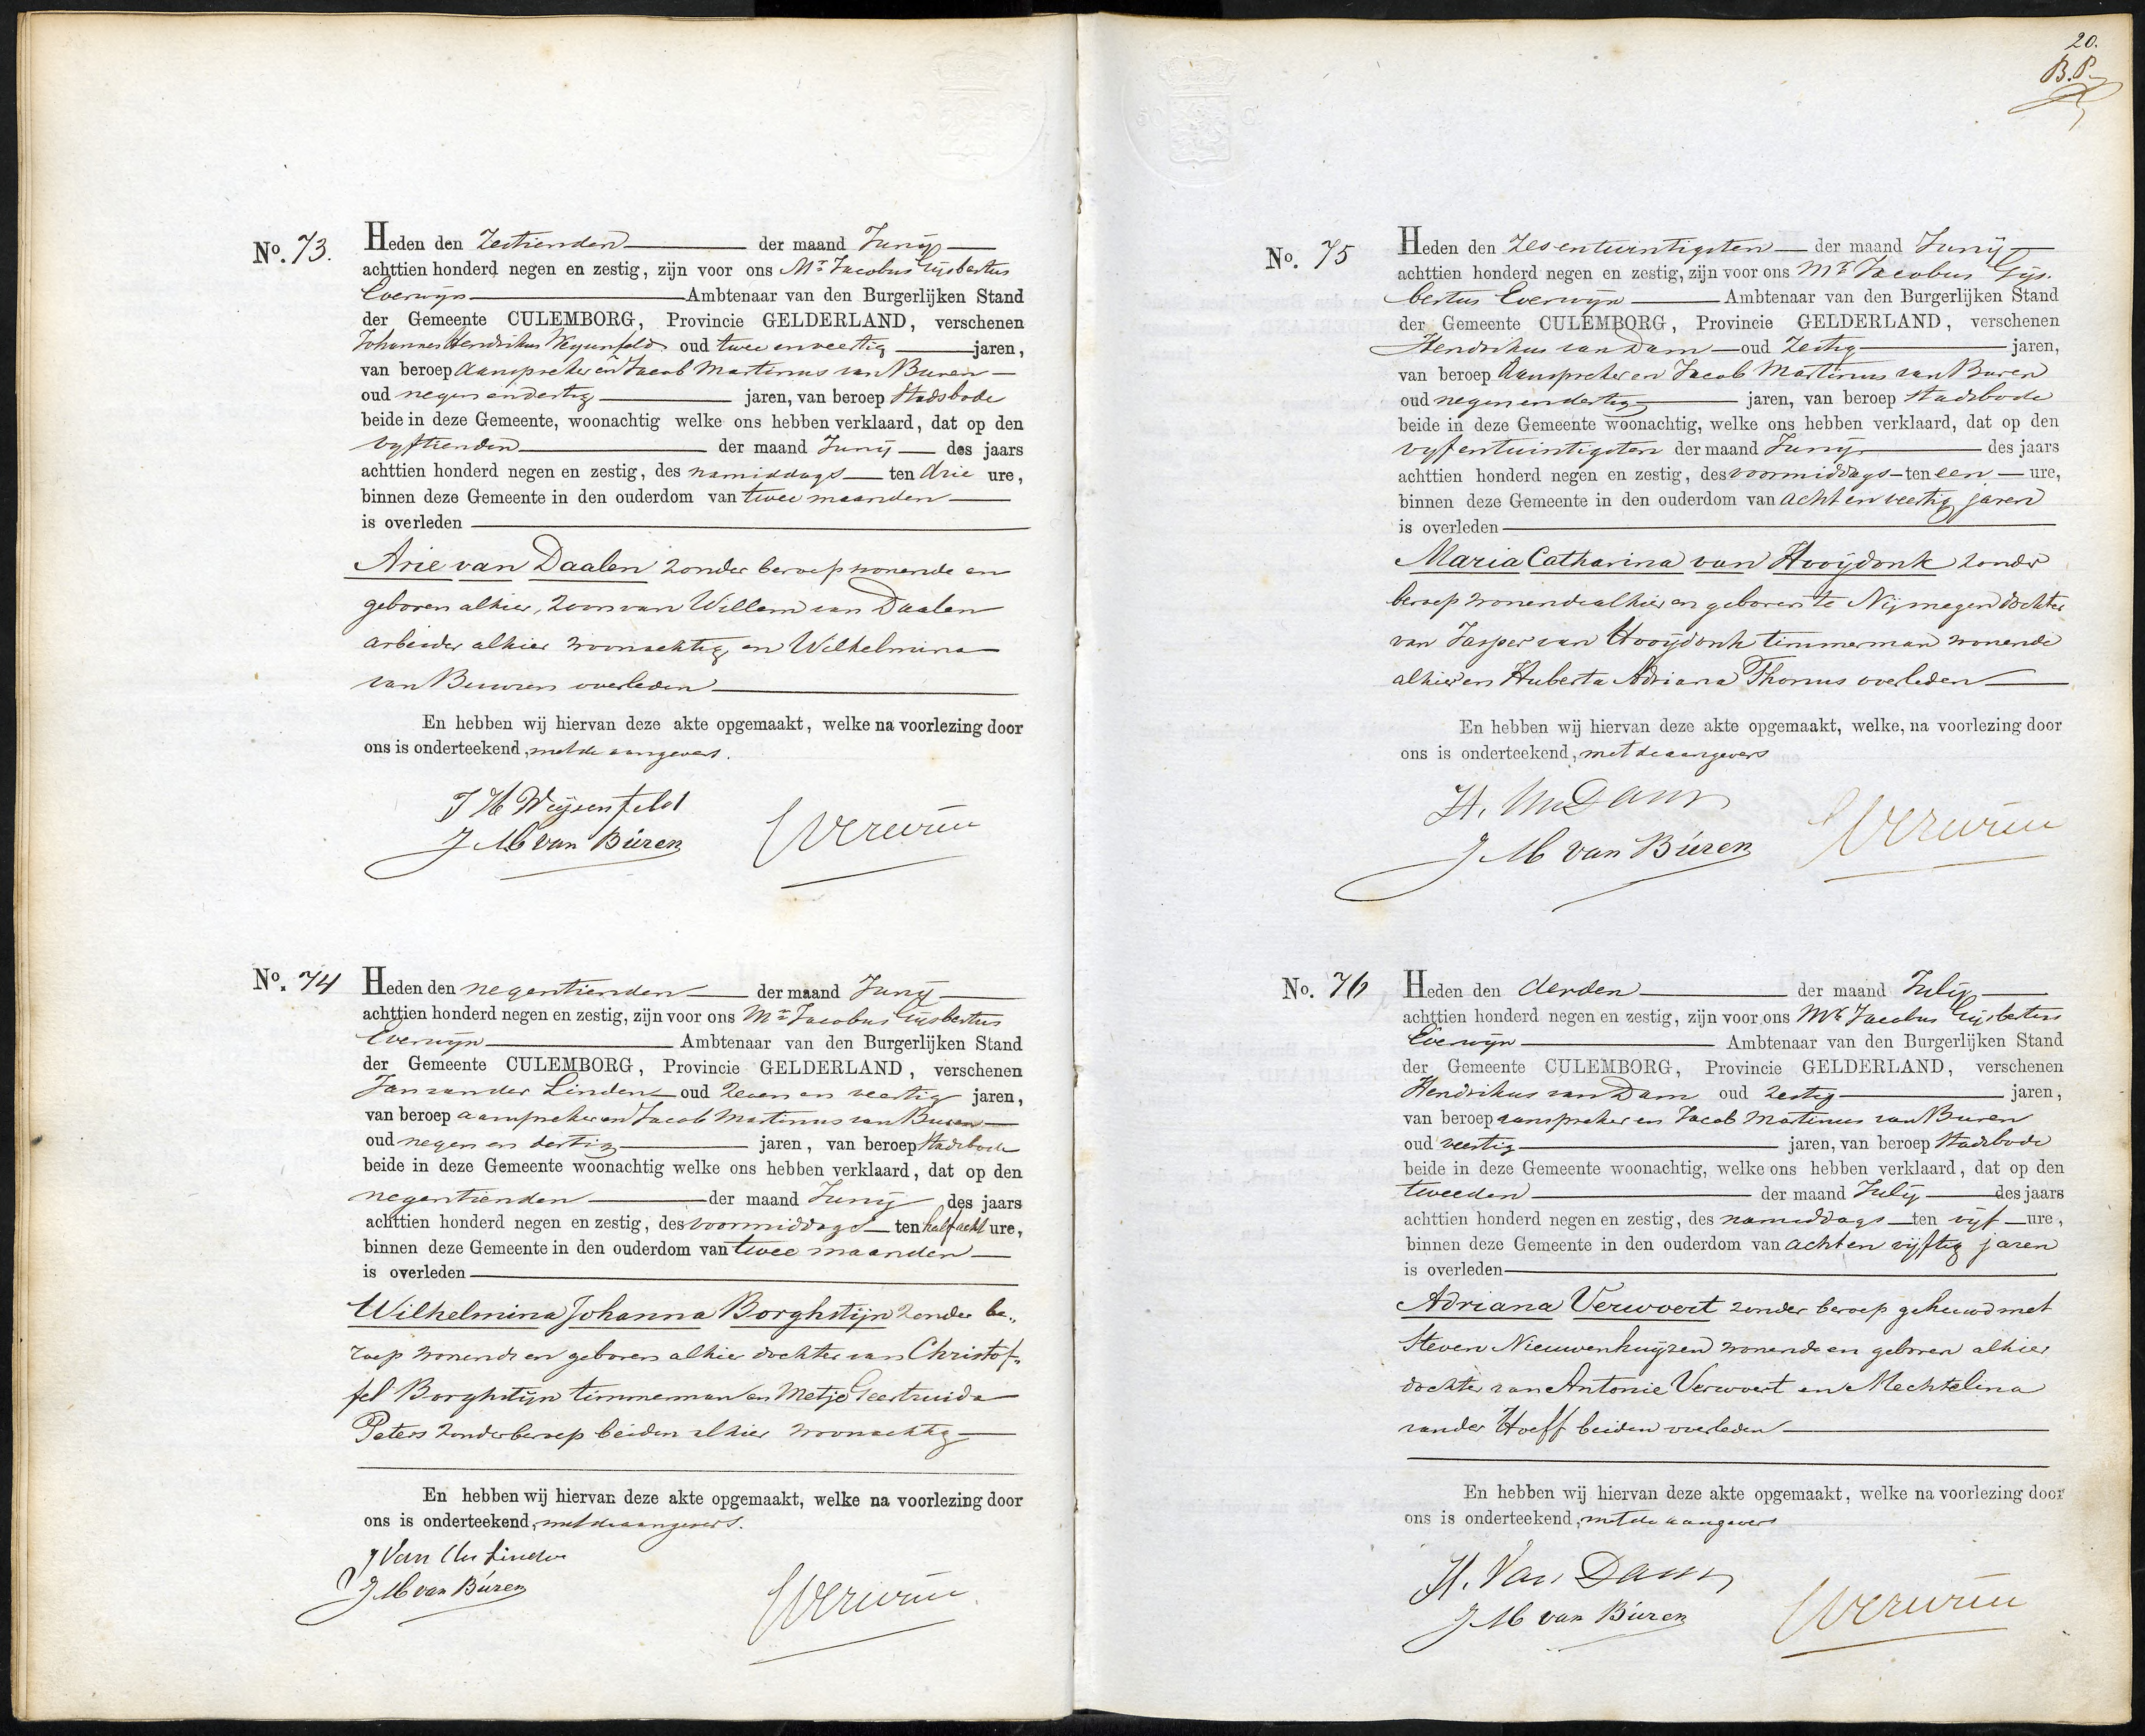 No. 73.
Heden den Zestienden der maand Junij
achttien honderd negen en zestig, zijn voor ons Mr. Jacobus Gijsbertus
Everwijn Ambtenaar van den Burgerlijken Stand
der Gemeente CULEMBORG, Provincie GELDERLAND, verschenen
Johannes Hendrikus Weijsenfeld oud twee en veertig jaren,
van beroep Aanspreker en Jacob Martinus van Buren
oud negen en dertig jaren, van beroep Stadsbode
beide in deze Gemeente, woonachtig welke ons hebben verklaard, dat op den
vyftienden der maand Junij des jaars
achttien honderd negen en zestig, des namiddags ten drie ure,
binnen deze Gemeente in den ouderdom van twee maanden
is overleden
Arie van Daalen zonder beroep wonende en
geboren alhier, zoon van Willem van Daalen
arbeider alhier woonachtig en Wilhelmina
van Beuren overleden
En hebben wij hiervan deze akte opgemaakt, welke na voorlezing door
ons is onderteekend, met de aangevers.
J H Weijsenfeld
J M van Buren Everwijn
No. 74
Heden den negentienden der maand Junij
achttien honderd negen en zestig, zijn voor ons Mr. Jacobus Gijsbertus
Everwijn Ambtenaar van den Burgerlijken Stand
der Gemeente CULEMBORG, Provincie GELDERLAND, verschenen
Jan van der Linden oud Zeven en veertig jaren,
van beroep aanspreker en Jacob Martinus van Buren
oud negen en dertig jaren, van beroep Stadsbode
beide in deze Gemeente woonachtig welke ons hebben verklaard, dat op den
negentienden der maand Junij des jaars
achttien honderd negen en zestig, des voormiddags ten half acht ure,
binnen deze Gemeente in den ouderdom van twee maanden
is overleden
Wilhelmina Johanna Borghstijn zonder be„
roep wonende en geboren alhier dochter van Christof„
fel Borghstijn timmerman en Metje Geertruida
Peters zonder beroep beiden alhier woonachtig
En hebben wij hiervan deze akte opgemaakt, welke na voorlezing door
ons is onderteekend, met de aangevers.
J Van der Linden
J M van Buren Everwijn
20.
B.P.
No. 75
Heden den Zes en twintigsten der maand Junij
achttien honderd negen en zestig, zijn voor ons Mr. Jacobus Gijs„
bertus Everwijn Ambtenaar van den Burgerlijken Stand
der Gemeente CULEMBORG, Provincie GELDERLAND, verschenen
Hendrikus van Dam oud Zestig jaren,
van beroep Aanspreker en Jacob Martinus van Buren
oud negen en dertig jaren, van beroep Stadsbode
beide in deze Gemeente woonachtig, welke ons hebben verklaard, dat op den
vyf en twintigsten der maand Junij des jaars
achttien honderd negen en zestig, des voormiddags ten een ure,
binnen deze Gemeente in den ouderdom van acht en veertig jaren
is overleden
Maria Catharina van Hooijdonk zonder
beroep wonende alhier en geboren te Nijmegen dochter
van Jasper van Hooijdonk timmerman wonende
alhier en Huberta Adriana Thonus overleden
En hebben wij hiervan deze akte opgemaakt, welke, na voorlezing door
ons is onderteekend, met de aangevers
H. Van Dam
J M van Buren Everwijn
No. 76
Heden den derden der maand Julij
achttien honderd negen en zestig, zijn voor ons Mr. Jacobus Gijsbertus
Everwijn Ambtenaar van den Burgerlijken Stand
der Gemeente CULEMBORG, Provincie GELDERLAND, verschenen
Hendrikus van Dam oud zestig jaren,
van beroep aanspreker en Jacob Martinus van Buren
oud veertig jaren, van beroep Stadsbode
beide in deze Gemeente woonachtig, welke ons hebben verklaard, dat op den
tweeden der maand Julij des jaars
achttien honderd negen en zestig, des namiddags ten vijf ure,
binnen deze Gemeente in den ouderdom van acht en vijftig jaren
is overleden
Adriana Verwoert zonder beroep gehuwd met
Steven Nieuwenhuijzen wonende en geboren alhier
dochter van Antonie Verwoert en Mechtelina
van der Hoeff beiden overleden
En hebben wij hiervan deze akte opgemaakt, welke na voorlezing door
ons is onderteekend, met de aangevers
H. Van Dam
J M van Buren Everwijn